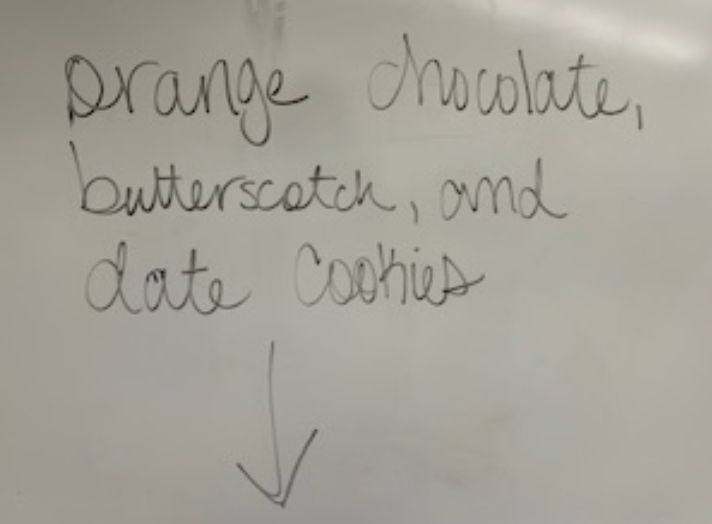 orange chocolate,
butterscotch, and
date cookies